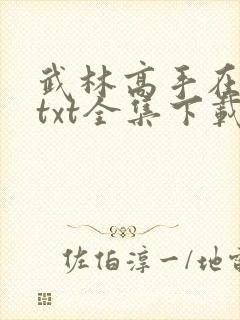 武林高手在
txt全集下载
佐伯淳一/地雷